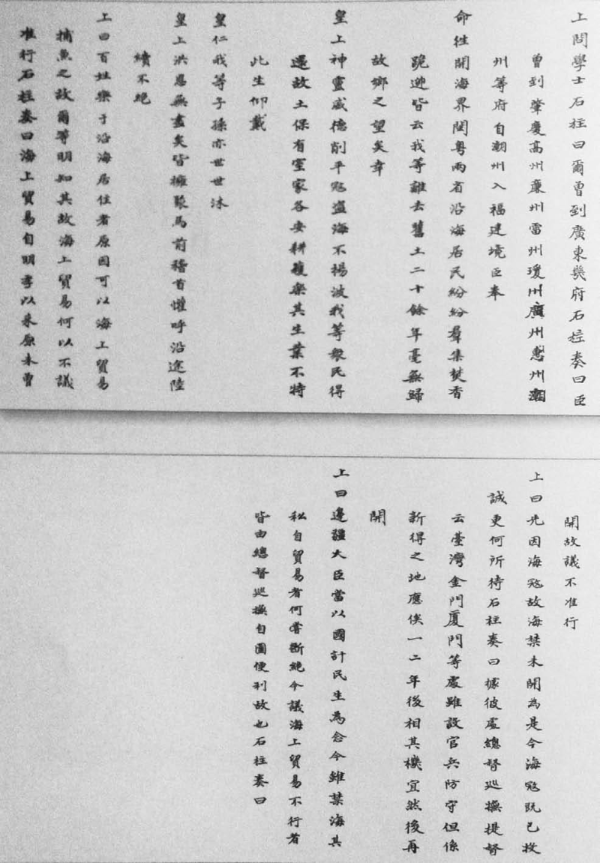 上問學士石柱曰爾曾到廣東幾府石柱奏曰臣
曾到肇慶高州廉州雷州瓊州廣州惠州潮
州等府自潮州入福建境臣奉
命往開海界閩粵兩省沿海居民紛紛群集焚香
跪迎皆云我等離去舊土二十餘年毫無歸
故鄉之望矣幸
皇上神靈威德削平寇盜海不揚波我等眾民得
還故土保有室家各安耕穫樂其生業不特
此生仰戴
皇仁我等子孫亦世世沐
皇上洪恩無盡矣皆擁聚馬前稽首懽呼沿途陸
續不絕
上曰百姓樂于沿海居住者原因可以海上貿易
捕魚之故爾等明知其故海上貿易何以不議
准行石柱奏曰海上貿易自明季以來原未曾
開故議不准行
上曰先因海寇故海禁未開為是今海寇既已投
誠更何所待石柱奏曰據彼處總督巡撫提督
云臺灣金門廈門等處雖設官兵防守但係
新得之地應俟一二年後相其機宜然後再
開
上曰邊疆大臣當以國計民生為念今雖禁海其
私自貿易者何嘗斷絕今議海上貿易不行者
皆由總督巡撫自圖便利故也石柱奏曰